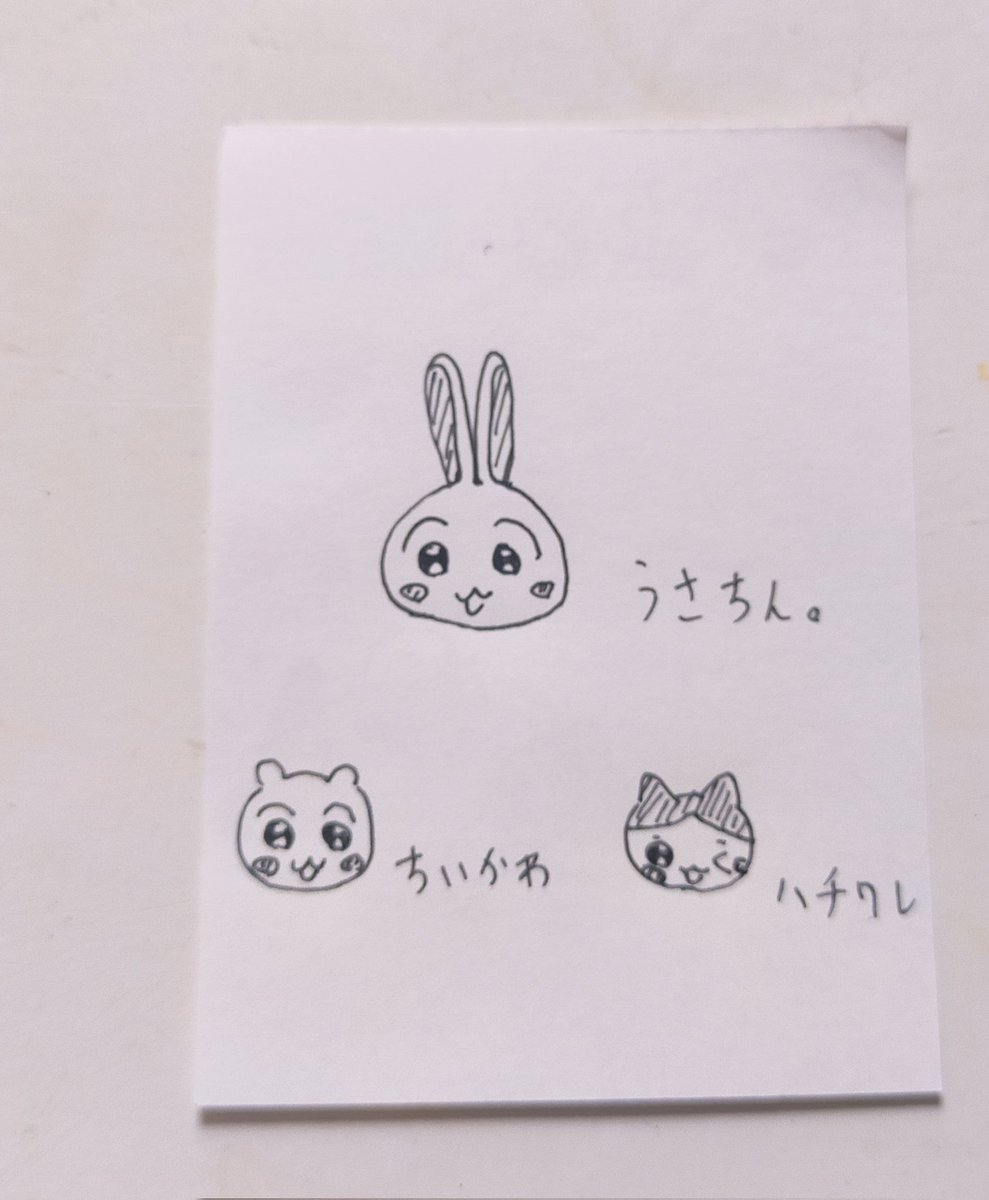 うさちん。
ちいかわ
ハチワレ